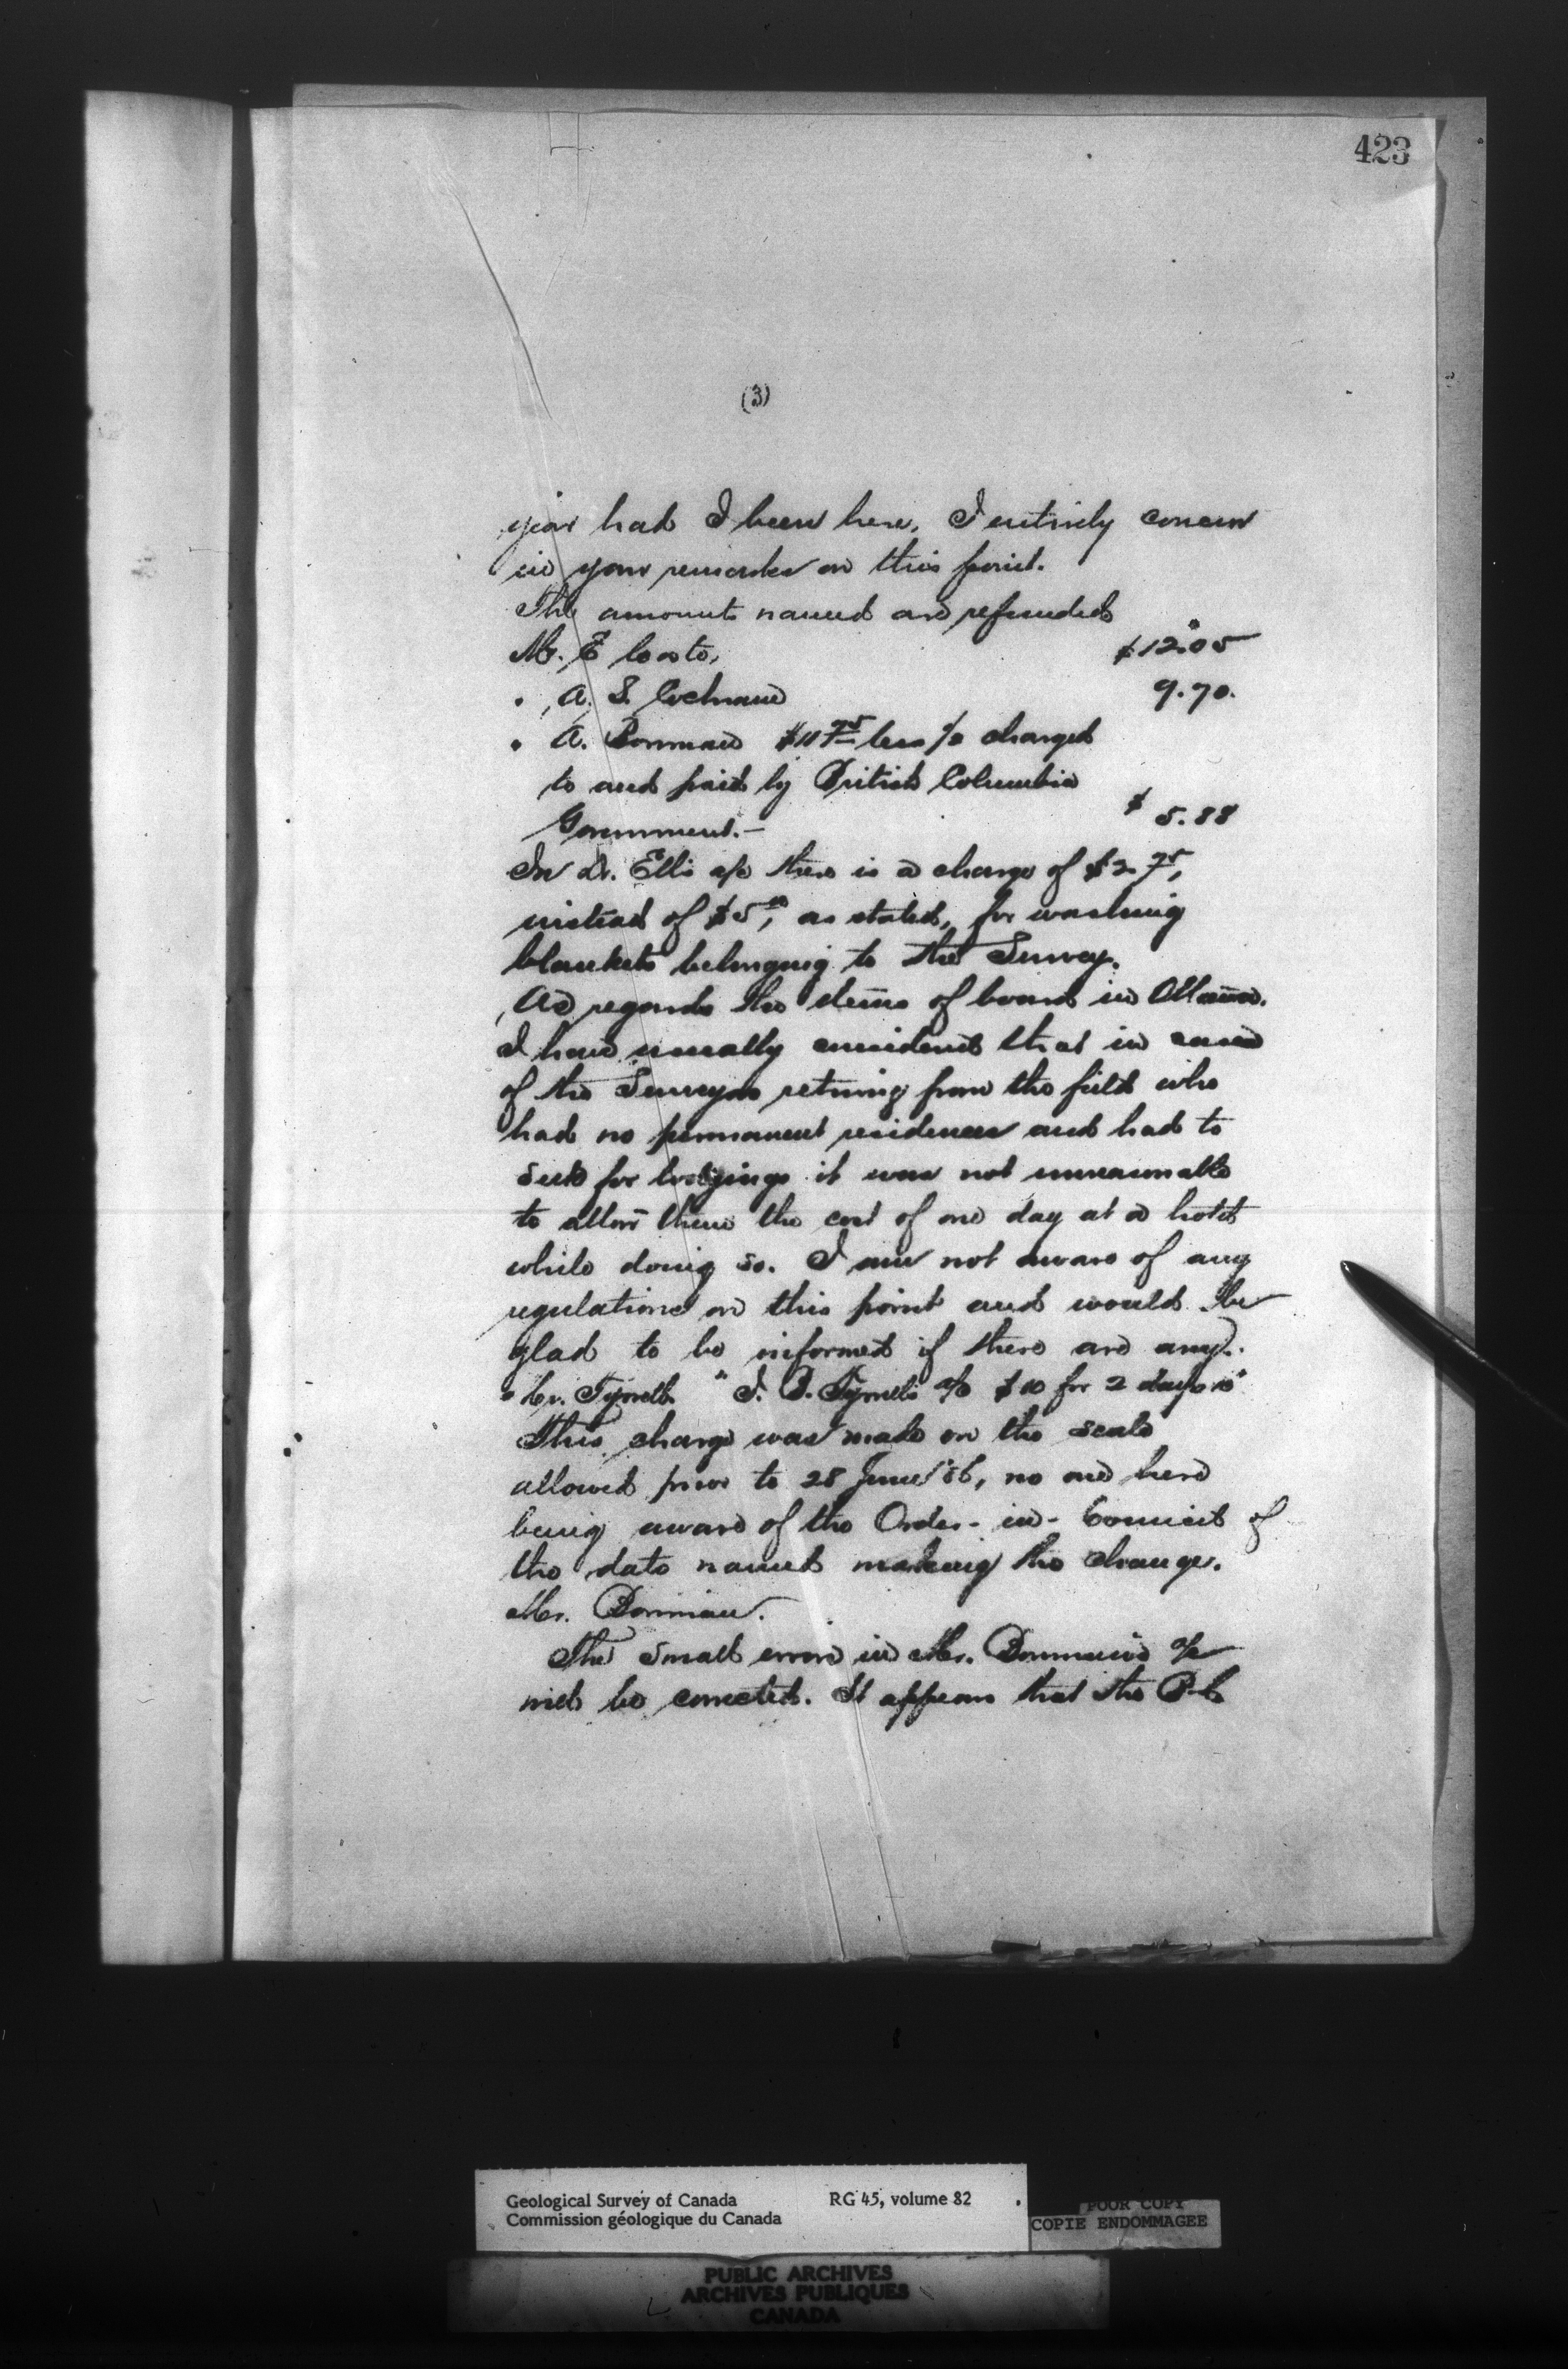 423
(3)
year had I been here. I entirely concur
in your remarks on this point.
The amounts named are refunded
Mr. E Coste, $12.05
" A. S. Cochrane 9.70.
" A. Bowman $11 75 less ½ charged
to and paid by British Columbia
Government.— $ 5.88
In Dr. Ells a/c there is a charge of $2.75,
instead of $5 00, as stated, for washing
blankets belonging to the Survey.
As regards the items of board in Ottawa.
I have usually considered that in cases
of the Surveyors returning from the field who
had no permanent residences and had to
seek for lodgings it was not unreasonable
to allow them the cost of one day at a hotel
while doing so. I am not aware of any
regulations on this point and would be
glad to be informed if there are any.
" Mr. Tyrrell. " J. B. Tyrrell's a/c $10 for 2 days "
This charge was made on the scale
allowed prior to 28 June '86, no one here
being aware of the Order-in-Council of
the date named making the change.
Mr. Bowman.
The small error in Mr. Bowman's a/c
will be corrected. It appears that the B.C.
Geological Survey of Canada RG 45, volume 82
Commission géologique du Canada
POOR COPY
COPIE ENDOMMAGEE
PUBLIC ARCHIVES
ARCHIVES PUBLIQUES
CANADA